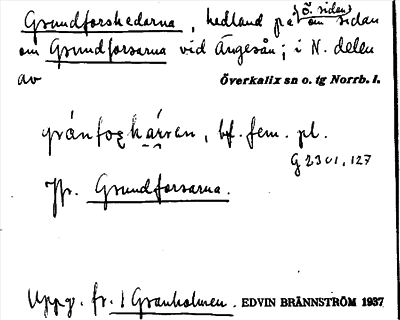 Grundforshedarna, hedland på Ö. sidan
om Grundforsarna vid Ängesån; i N. delen
av Överkalix sn o. tg Norrb. l.
bf. fem. pl.
G 2301, 127
Jfr. Grundforsarna.
Uppg. fr. 1 Granholmen. EDVIN BRÄNNSTRÖM 1937